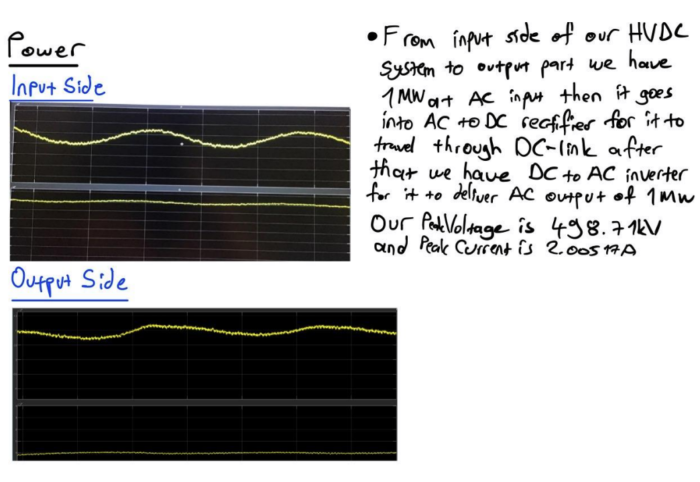 Power
Input Side
Output Side
• From input side of our HVDC
System to output part we have
1MW at AC input then it goes
into AC to DC rectifier for it to
travel through DC-link after
that we have DC to AC inverter
for it to deliver AC output of 1MW
Our Peak Voltage is 498.71kV
and Peak Current is 2.00517A